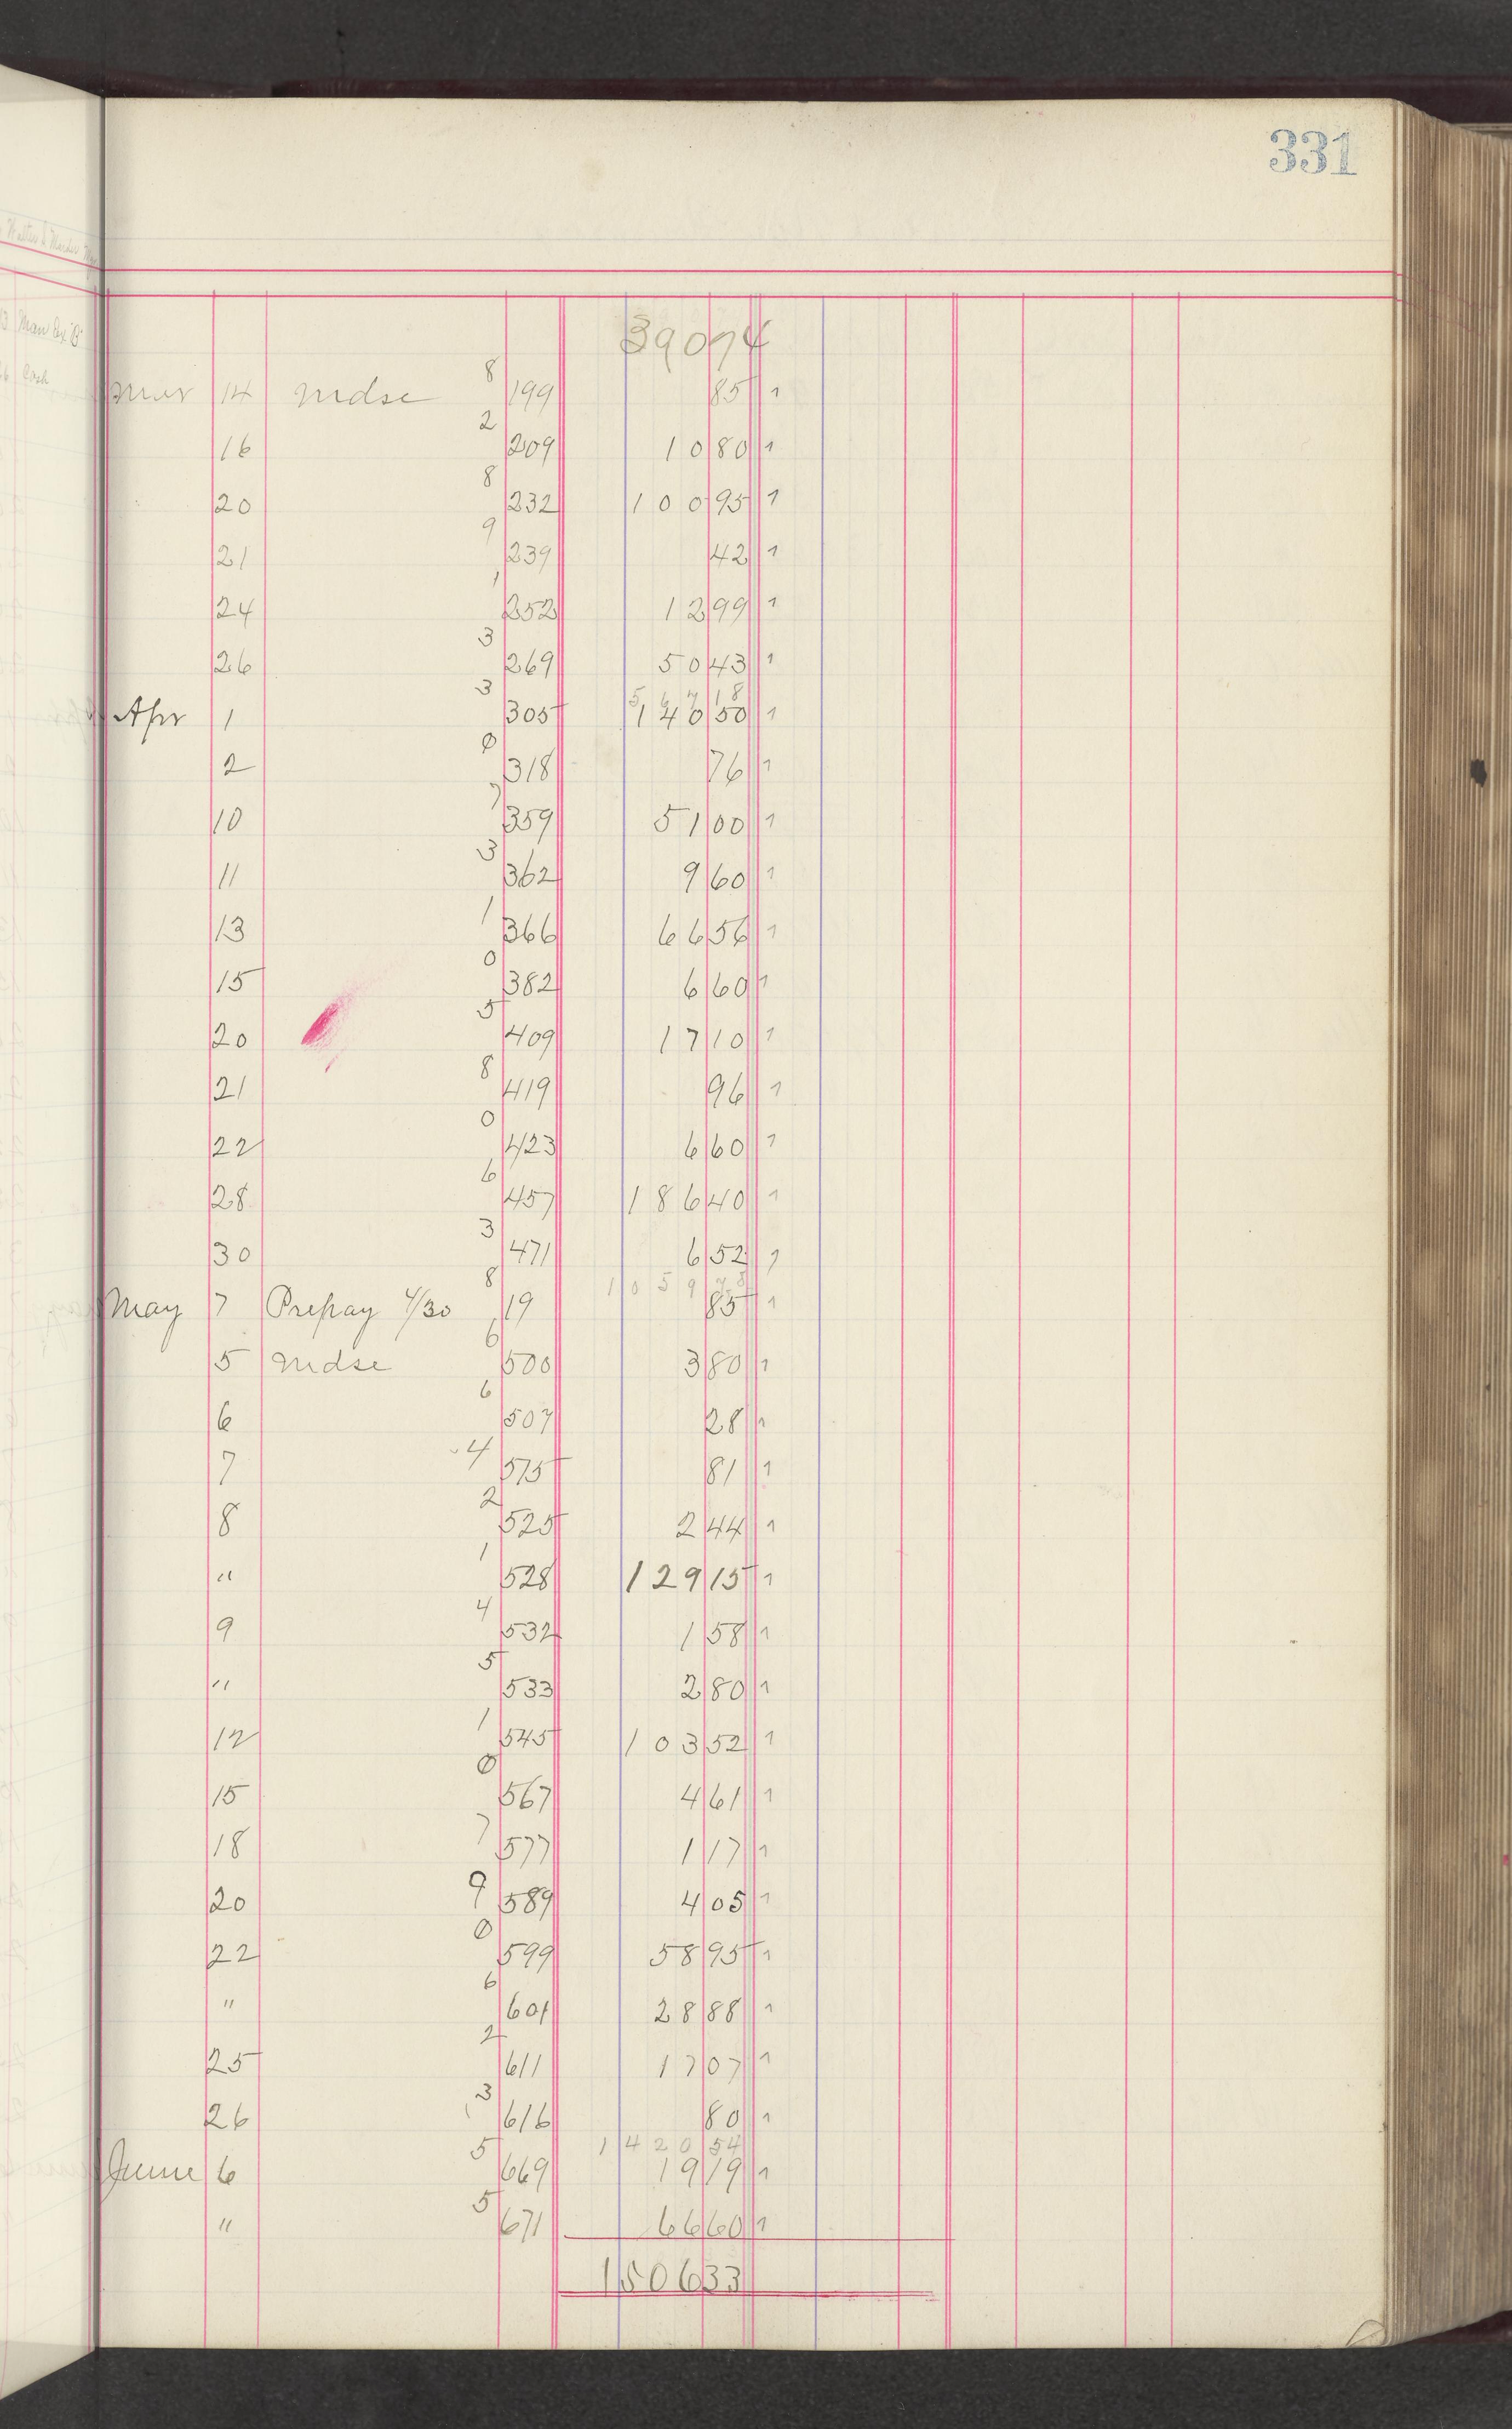 331
Walter & Marder
13 Man Ex "B"
Cash
390 74
Mar 14 Mdse 8 199 85 1
16 2 209 10 80 1
20 8 232 100 95 1
21 9 239 42 1
24 1 252 12 99 1
26 3 269 50 43 1
567 18
Apr 1 3 305 140 50 1
2 0 318 76 1
10 7 359 51 00 1
11 3 362 9 60 1
13 1 366 66 56 1
15 0 382 6 60 1
20 5 409 17 10 1
21 8 419 96 1
22 0 423 6 60 1
28 6 457 186 40 1
30 3 471 6 52 1
1059 78
May 7 Prepay 4/30 8 19 85 1
5 Mdse 6 500 3 80 1
6 6 507 28 1
7 4 515 81 1
8 2 525 2 44 1
" 1 528 129 15 1
9 4 532 1 58 1
" 5 533 2 80 1
12 1 545 103 52 1
15 0 567 4 61 1
18 7 577 1 17 1
20 9 589 4 05 1
22 0 599 58 95 1
" 6 601 28 88 1
25 2 611 17 07 1
26 3 616 80 1
1420 54
June 6 5 669 19 19 1
" 5 671 66 60 1
1506 33